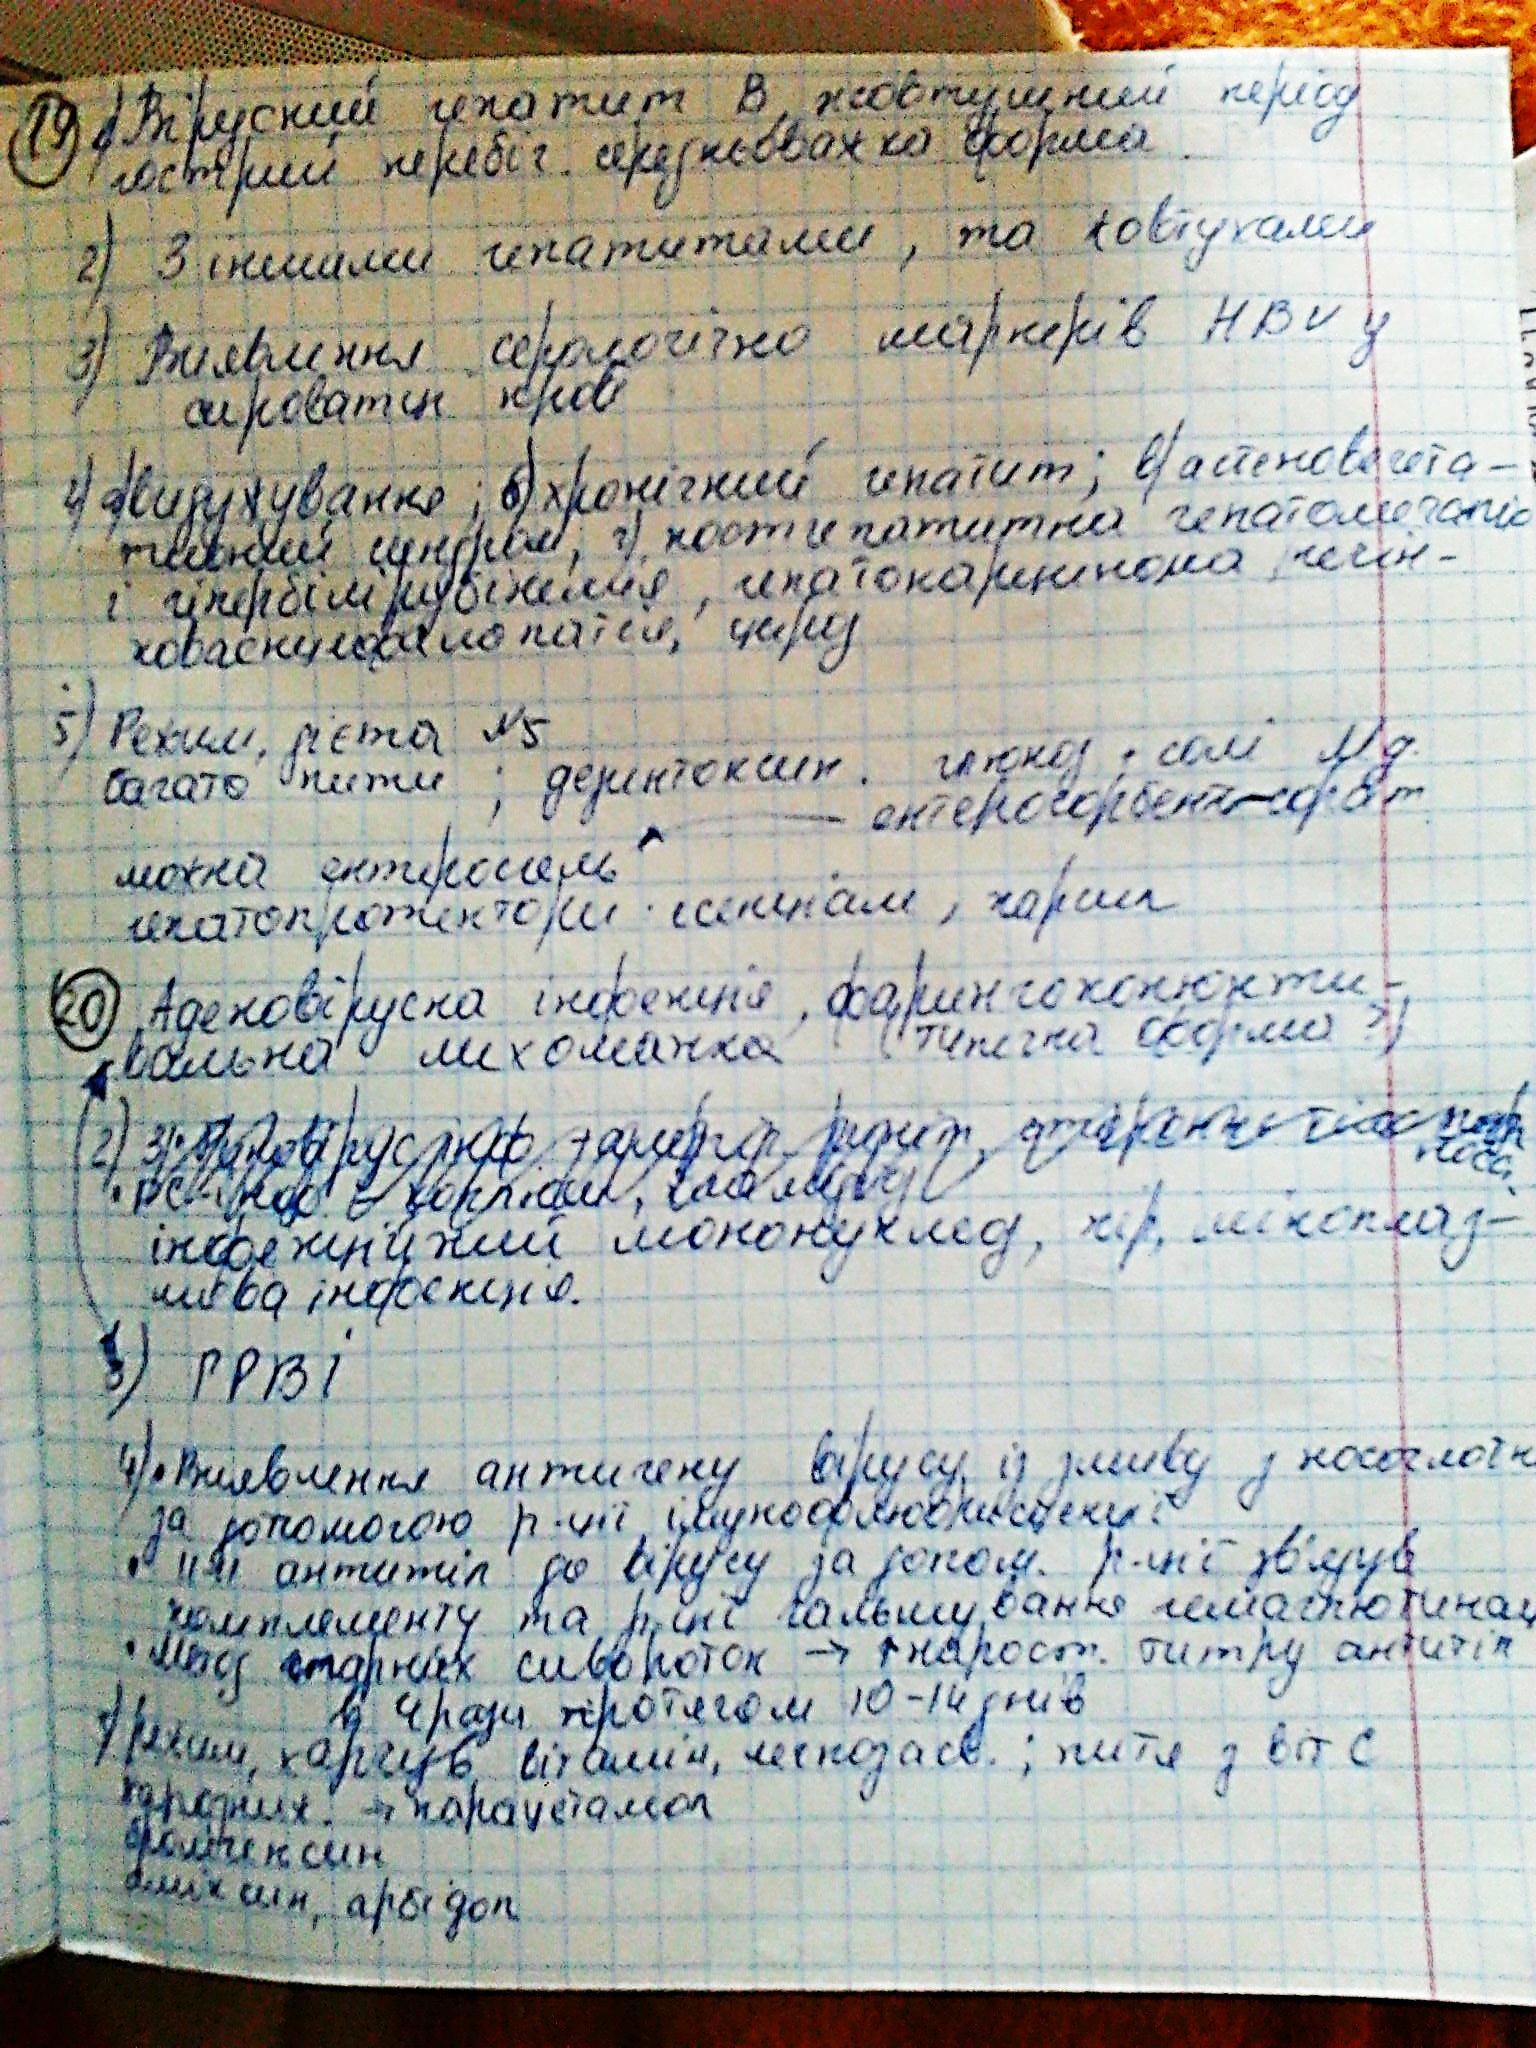 19 1) Вірусний гепатит В, жовтушний період
гострий перебіг. середньоважка форма.
2) З іншими гепатитами, та жовтухами
3) Виявлення серологічно маркерів HBV у
сироватці крові
4) а) видужування; б) хронічний гепатит; в) астеновегета-
тивний синдром, г) постгепатитна гепатомегалія
і гіпербілірубінемія, гепатокарцинома, печін-
кова цироз
5) Режим, дієта №5
багато пити; дезинтоксик. глюкоз, солі Mg.
ентеросорбенти
можна ентеросгель
гепатопротектори. есенціал, карсил
20 Аденовірусна інфекція, фарингоконюнкти-
вальна лихоманка (типічна форма?)
2)
інфекційний мононуклеоз, кір, мікоплаз-
мова інфекція.
3) ГРВІ
4) • Виявлення антигену вірусу із змиву з носоглотк
за допомогою р-ції імунофлюоресценції
• -"- антитіл до вірусу за допом. р-ції звязув
комплементу та р-ції гальмування гемаглютинац
• Метод парних сивороток → ↑ нарост. титру антитіл
в 4 рази протягом 10-14 днів
режим, харчув вітамін, легкозасв.; пиття з віт С
→ парацетамол
бромгексин
аміксин, арбідол